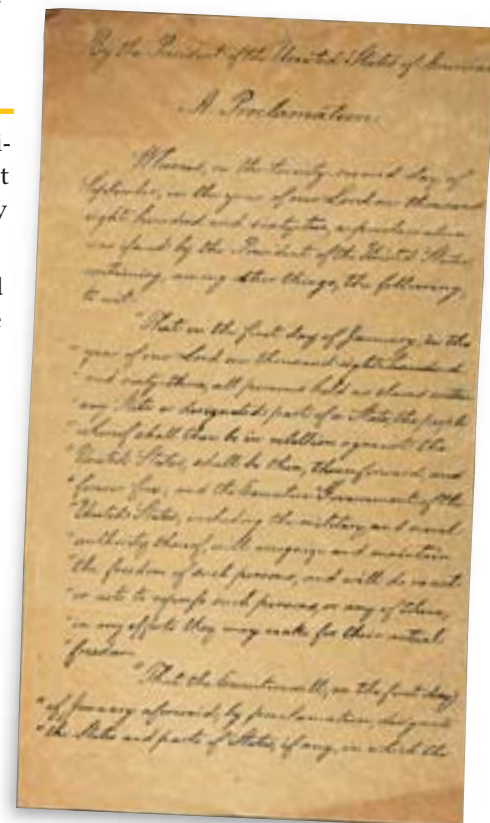 i-
t
y
l
e
By the President of the United States of America
A Proclamation.
Whereas, on the twenty-second day of
September, in the year of our Lord one thousand
eight hundred and sixty two, a proclamation
was issued by the President of the United States,
containing, among other things, the following,
to wit:
"That on the first day of January, in the
"year of our Lord one thousand eight hundred
"and sixty-three, all persons held as slaves within
"any State or designated part of a State, the people
"whereof shall then be in rebellion against the
"United States, shall be then, thenceforward, and
"forever free; and the Executive Government of the
"United States, including the military and naval
"authority thereof, will recognize and maintain
"the freedom of such persons, and will do no act
"or acts to repress such persons, or any of them,
"in any efforts they may make for their actual
"freedom.
"That the Executive will, on the first day
"of January aforesaid, by proclamation, designate
"the States and parts of States, if any, in which the